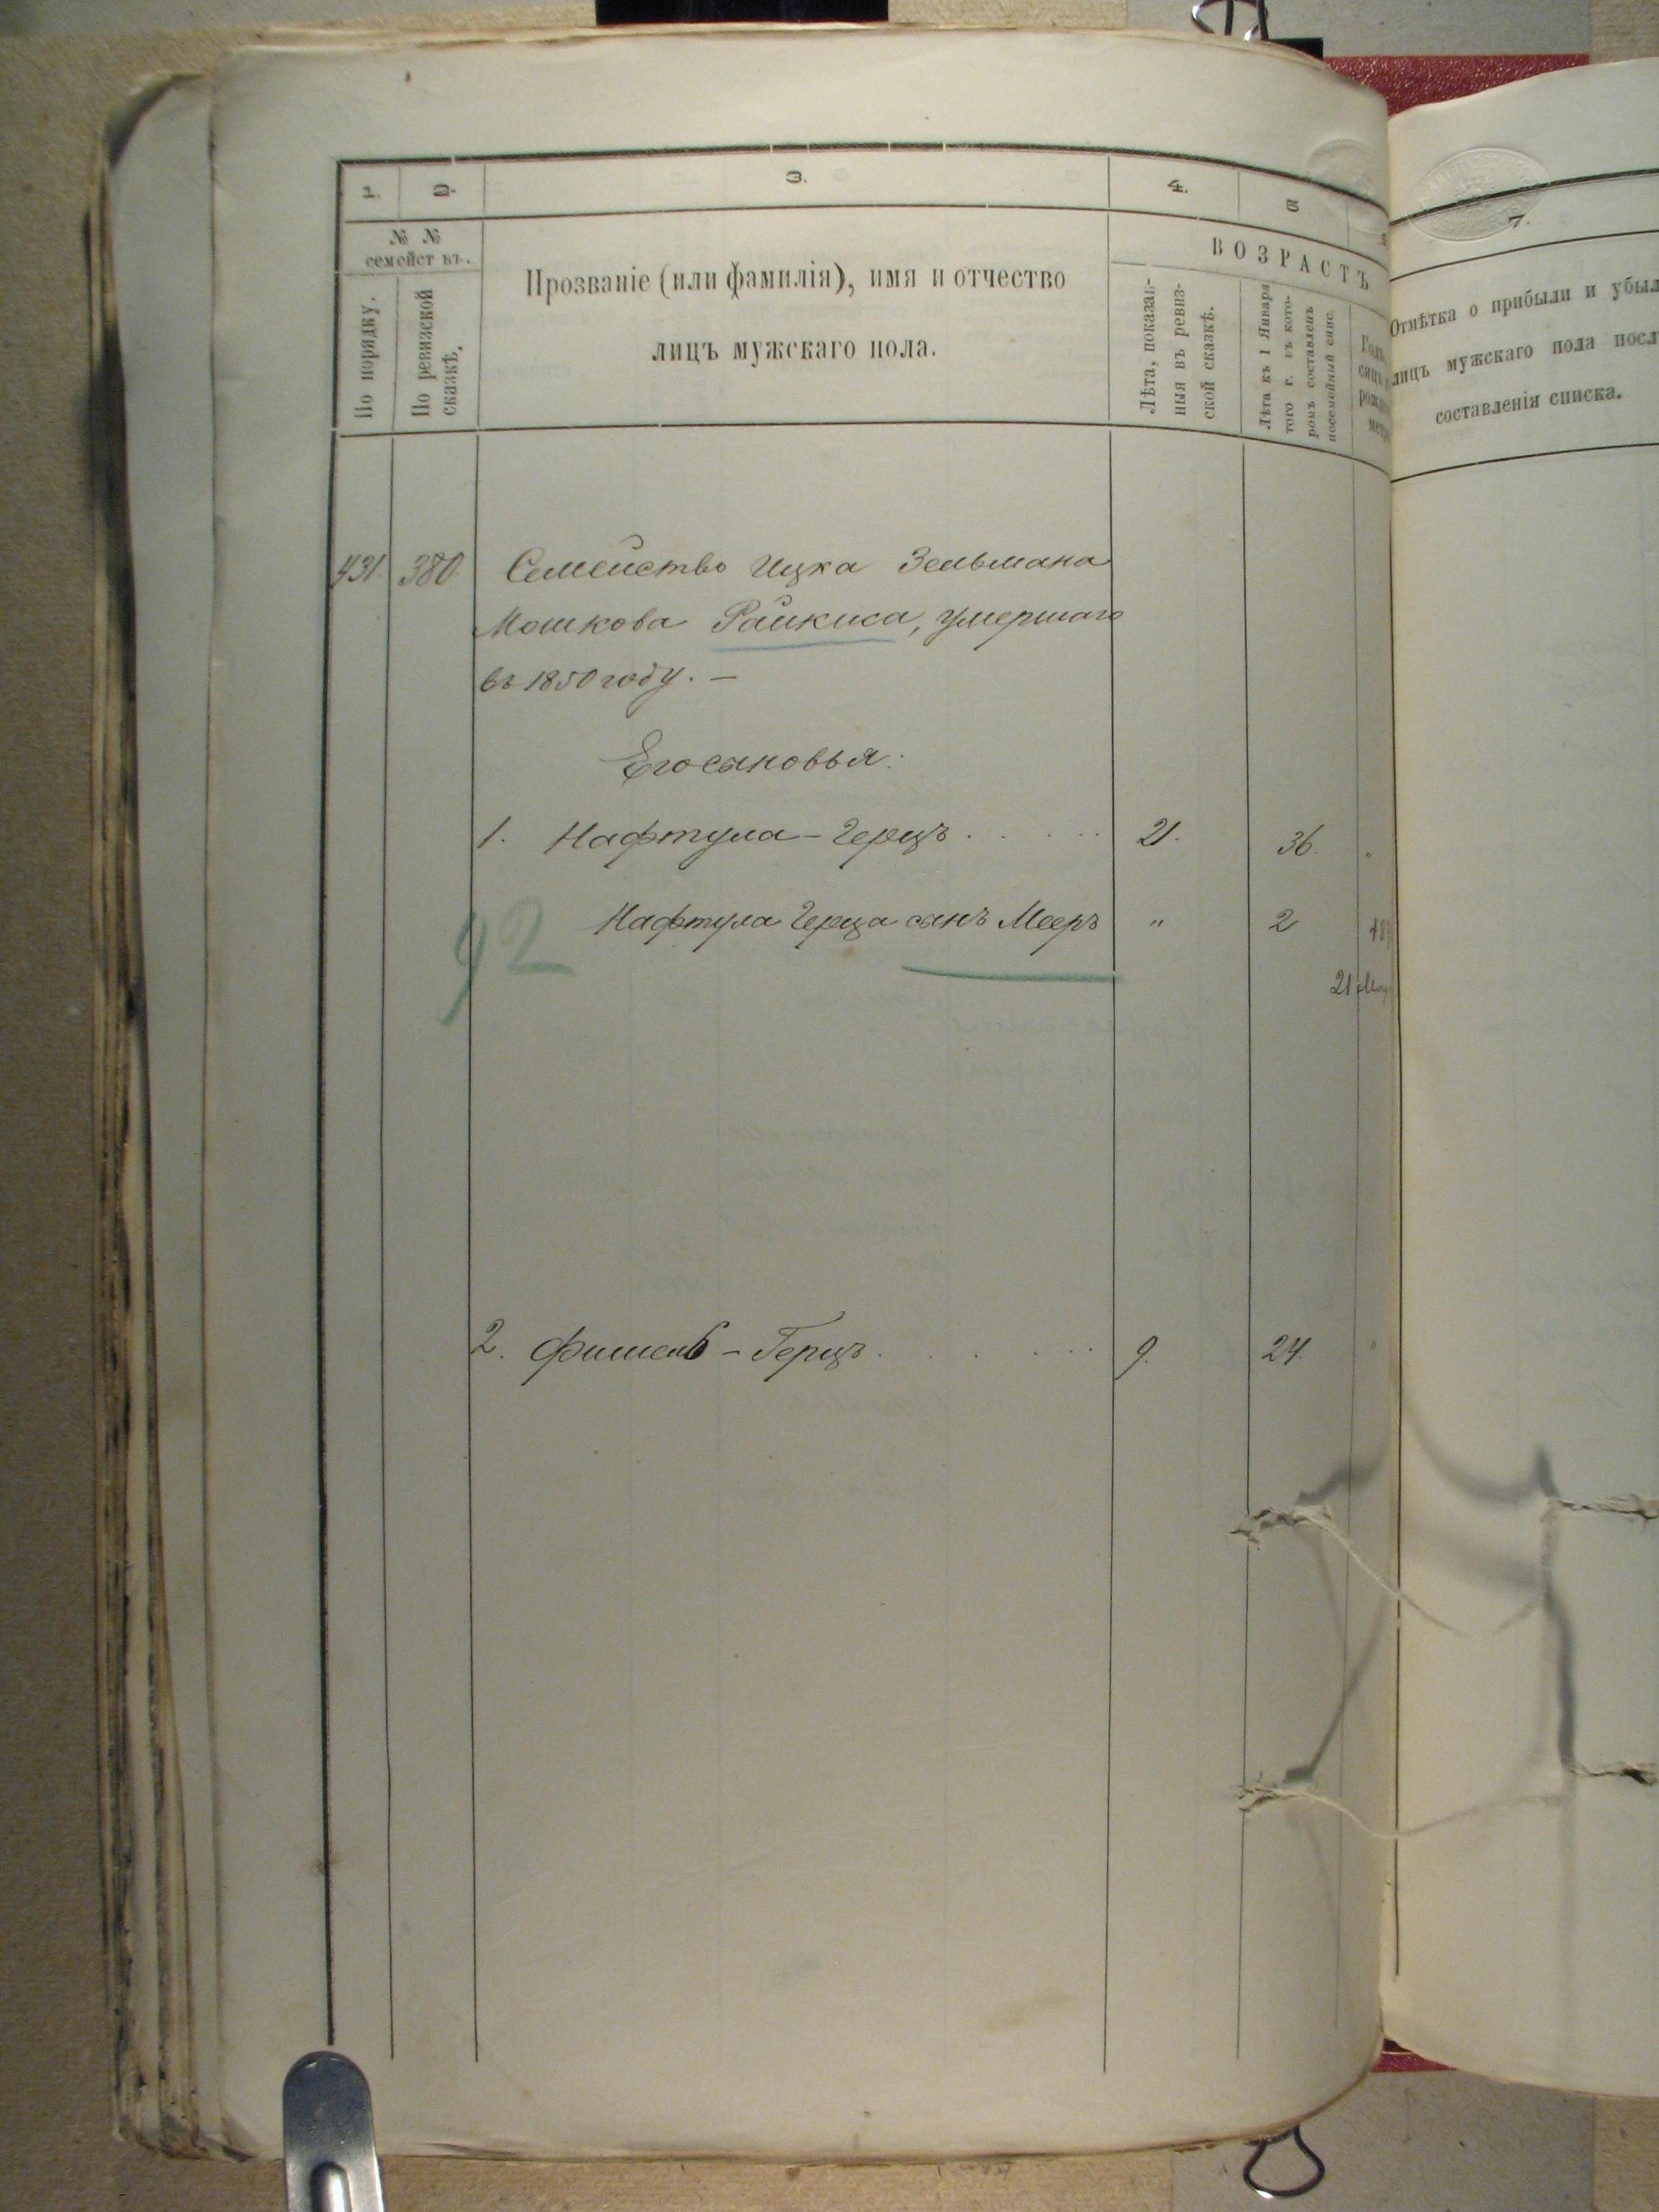 1. 2. 3. 4. 5
7.
№ №
семейст въ.
По порядку.
По ревизской
сказкѣ.
Прозваніе (или фамилія), имя и отчество
лицъ мужскаго пола.
ВОЗРАСТЪ
Лѣта, показан-
ныя въ ревиз-
ской сказкѣ.
Лѣта къ 1 Января
того г. въ кото-
ромъ составленъ
посемейный спис.
Отмѣтка о прибыли и убыл
лицъ мужскаго пола посл
составленія списка.
431. 380. Семейство Ицка Зельмана
Мошкова Райкиса, умершаго
въ 1850 году. —
Его сыновья:
1. Нафтула - Герцъ . . . . . 21. 36. "
Нафтула Герца сынъ Мееръ " 2 18
92
21 Мар
2. Фишель - Герцъ . . . . . 9. 24. "